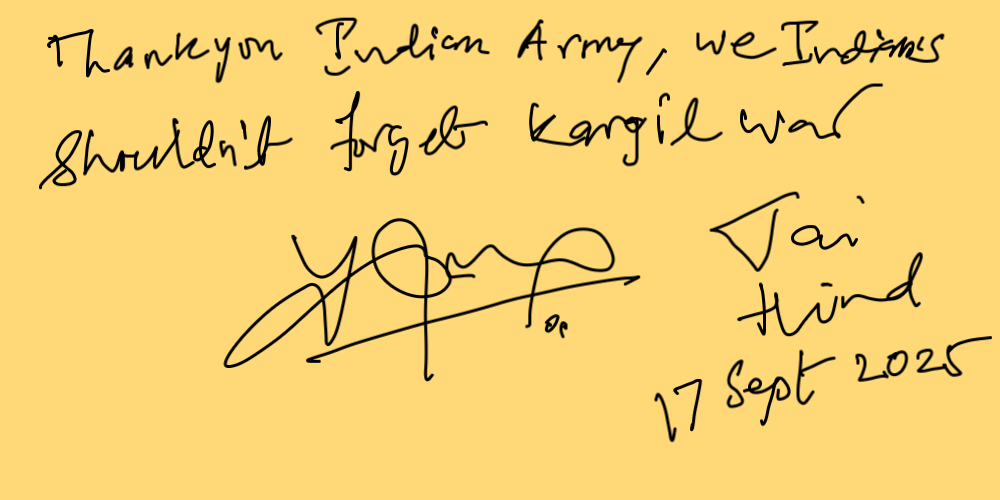 Thankyou Indian Army, we Indians
shouldn't forget Kargil war
Jai
Hind
17 Sept 2025